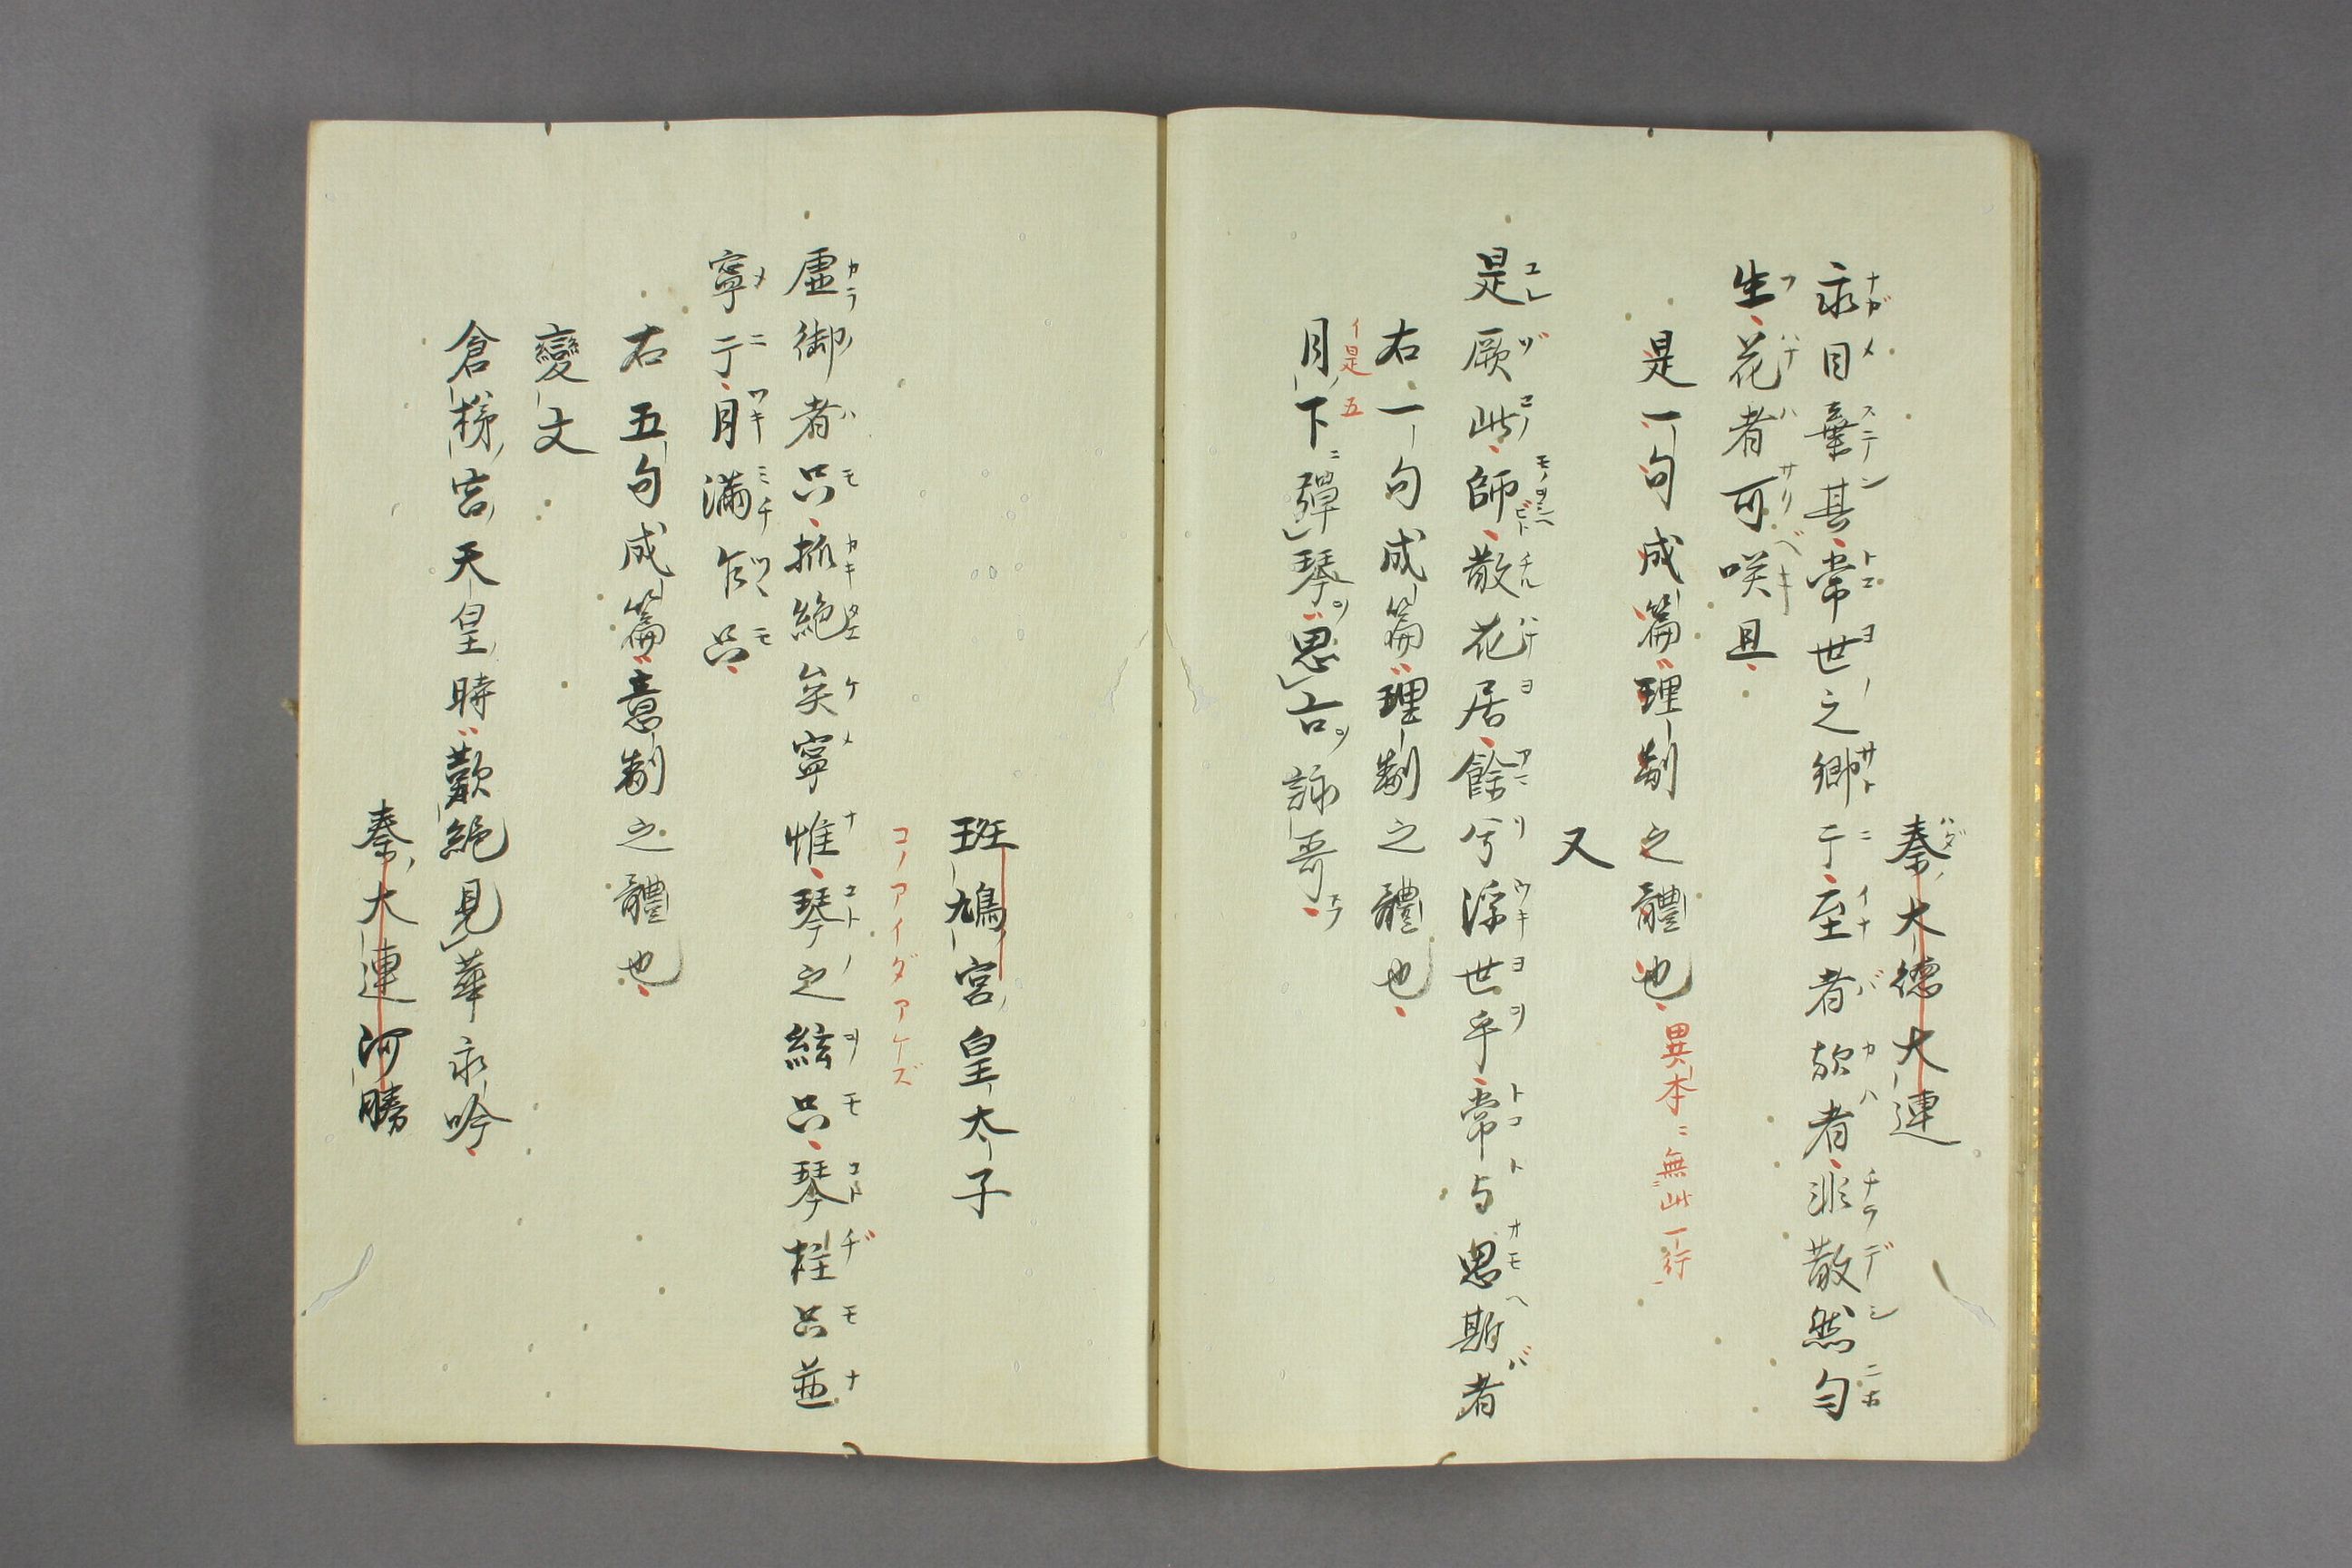 秦大德大連
永目棄其常世之鄉于至者欤者非散然匂
生花者可咲且
是一句成篇理制之體也 異本ニ無此一行
又
是厥此師散花居餘兮浮世乎常与思斯者
右一句成篇理制之體也
月下ニ彈琴ヲ思言ヲ詠哥
班鳩宮皇太子
コノアイダアケズ
虛御者只抓絕矣寧惟琴之絃只琴柱只並
寧于月滿矦只
右五句成篇意制之體也
變文
倉梯宮天皇時歎絕見華永吟
秦大連河勝